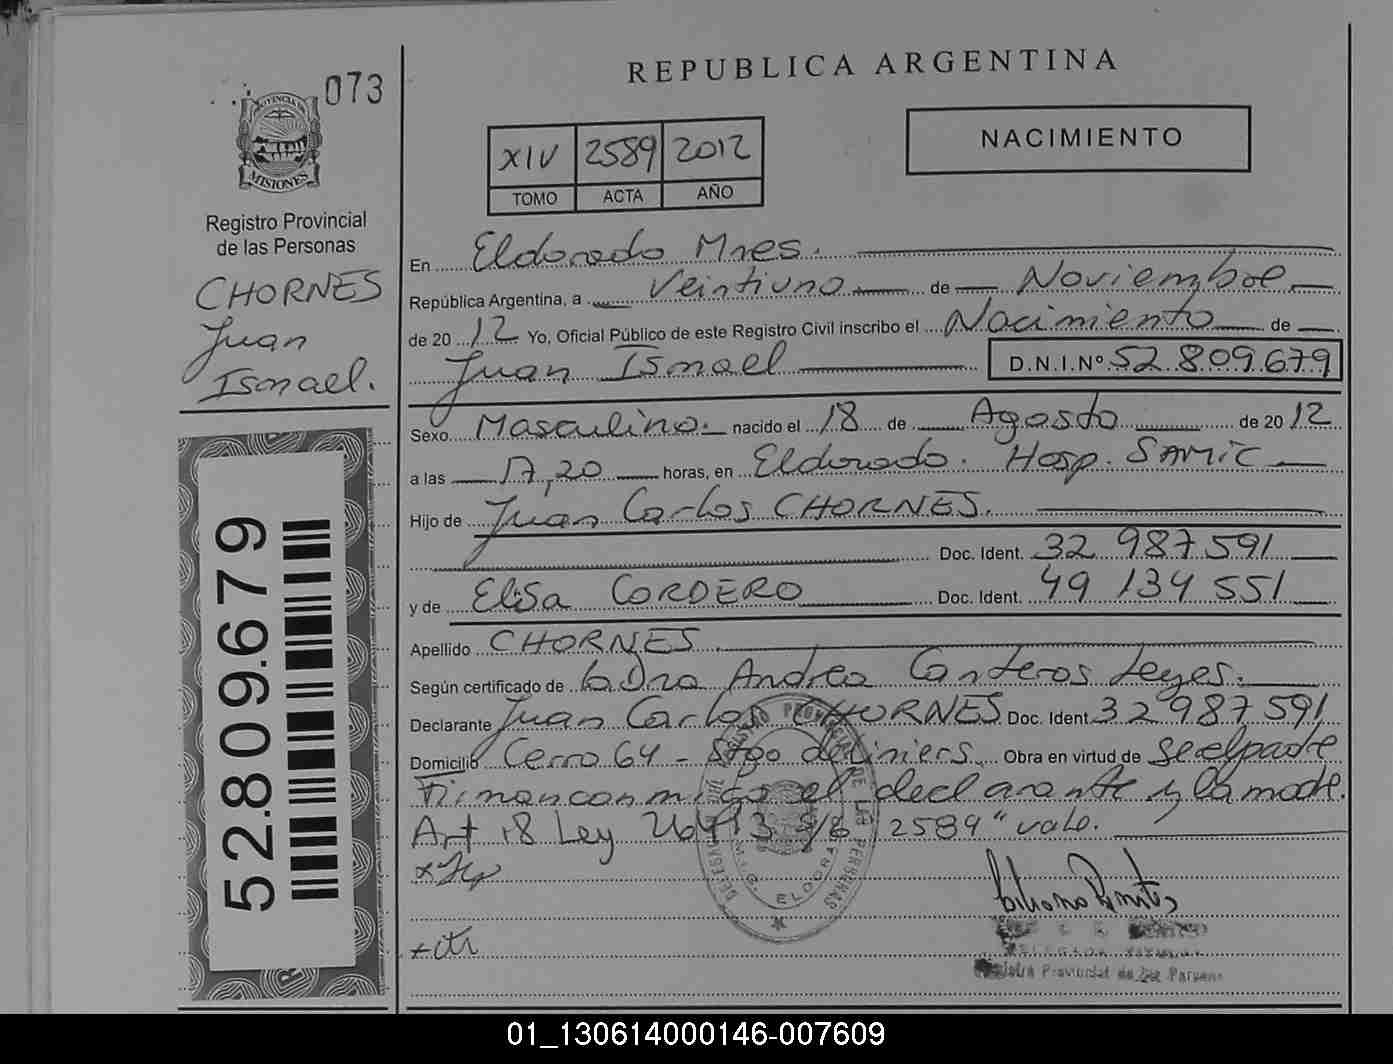 REPUBLICA ARGENTINA
073
NACIMIENTO
XIV 2589 2012
TOMO ACTA AÑO
PROVINCIA DE
MISIONES
Registro Provincial
de las Personas
CHORNES
Juan
Ismael.
52.809.679
En Eldorado Mnes.
República Argentina, a Veintiuno de Noviembre
de 2012 Yo, Oficial Público de este Registro Civil inscribo el Nacimiento de
Juan Ismael D.N.I.Nº 52.809.679
Sexo Masculino. nacido el 18 de Agosto de 2012
a las 17,20 horas, en Eldorado. Hosp. SAMIC
Hijo de Juan Carlos CHORNES.
Doc. Ident. 32 987 591
y de Elisa CORDERO Doc. Ident. 49 134 551
Apellido CHORNES
Según certificado de la Dra Andrea Canteros Leyes.
Declarante Juan Carlos CHORNES Doc. Ident 32 987 591
Domicilio Cerro 64 - Stgo de Liniers Obra en virtud de se el padre
Firman conmigo el declarante y la madre.
Art 18 Ley 26413 S/b "2589" vale.
ELDORADO
Registro Provincial de las Personas
01_130614000146-007609